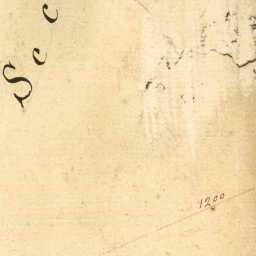 Sec
1200